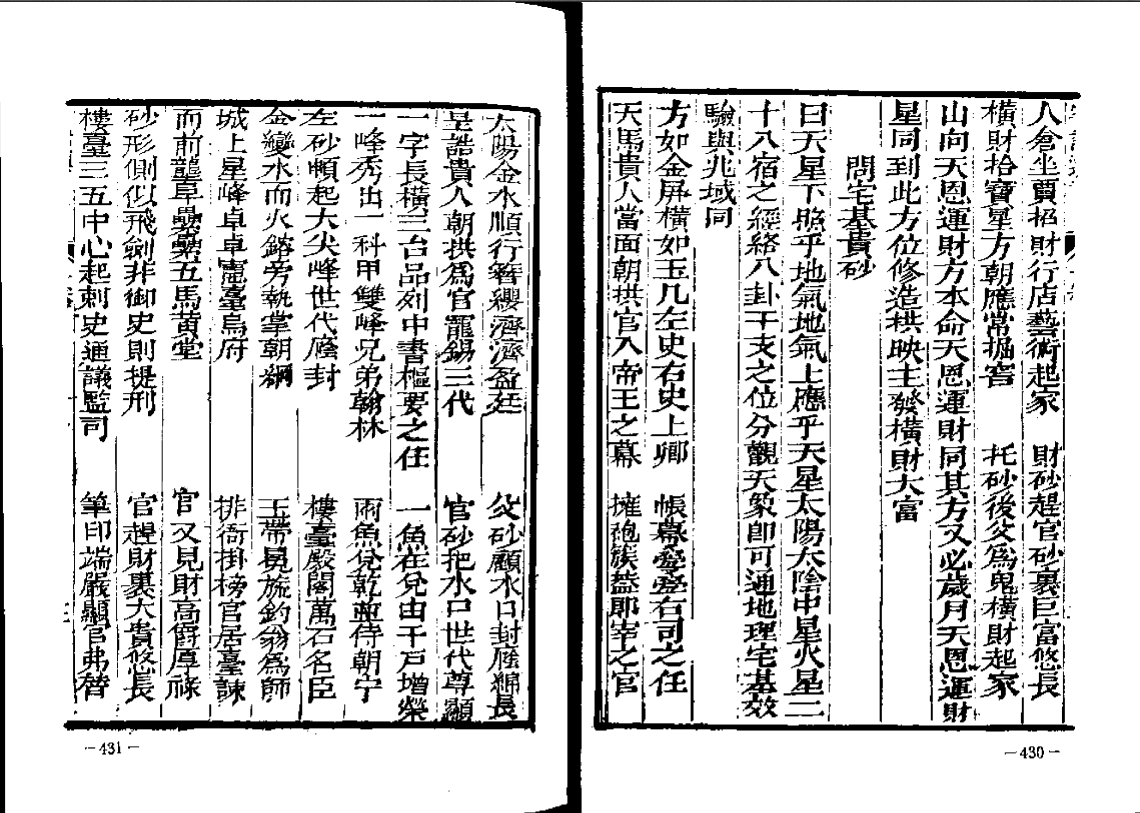 人倉坐賈招財行店藝術起家　財砂趕官砂裹巨富悠長
橫財拾寶星方朝應常掘窖　托砂後父為鬼橫財起家
山向天恩運財方本命天恩運財同其方又必歲月天恩運財
星同到此方位修造栱映主發橫財大富
問宅基貴砂
曰天星下照乎地氣地氣上應乎天星太陽太陰中星火星二
十八宿之經絡八卦干支之位分觀天象即可通地理宅基效
驗與兆域同
方如金屏橫如玉几左史右史上卿　帳幕叠叠右司之任
天馬貴人當面朝拱官入帝王之幕　擁砲簇蓋即宰之官
—430—
太陽金水順行簪纓濟濟盈廷　父砂顧水口封廕綿長
呈誥貴人朝拱為官寵錫三代　官砂把水口世代尊顯
一字長橫三台品列中書樞要之任　一魚在兌由千戶增榮
一峰秀出一科甲雙峰兄弟翰林　雨魚兌乾並侍朝宁
左砂頓起大尖峰世代廕封　樓臺殿閣萬石名臣
金變水而火鎔旁執掌朝綱　玉帶晃旒釣翁為師
城上星峰卓卓憲臺烏府　排衙掛榜官居臺諫
而前壟阜纍纍五馬黃堂　官又見財高爵厚祿
砂形側似飛劍非御史則提刑　官趕財裹大貴悠長
樓臺三五中心起刺史通議監司　筆印端嚴顯官弗替
—431—